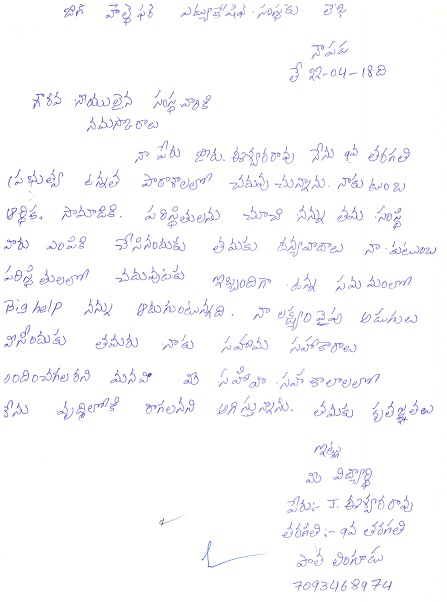 బిగ్ హెల్ప్‌ఫర్ ఎడ్యుకేషన్ సంస్థకు లేఖ
నాపడు
తే 22-04-18ది
గౌరవ నీయులైన సంస్థ వారికి
నమస్కారాలు
నా పేరు జారు. ఈశ్వరరావు నేను 9వ తరగతి
ప్రభుత్వ ఉన్నత పాఠశాలలో చదువు చున్నాను. నాకుటుంబ
ఆర్థిక. సామాజిక. పరిస్థితులను చూచి నన్ను తమ సంస్థ
వారు ఎంపిక చేసినందుకు తమకు ధన్యవాదాలు నా కుటుంబ
పరిస్థితులలో చదువుటకు ఇబ్బందిగా ఉన్న సమయంలో
Big help నన్ను ఆదుగుంటున్నది. నా లక్ష్యం వైపు అడుగులు
వేసేందుకు తమరు నాకు సహాయ సహాకారాలు
అందించగలరని మనవి మీ సహాయ సహకారాలతో
నేను వృద్ధిలోకి రాగలనని ఆశిస్తున్నాను. తమకు కృతజ్ఞతలు
ఇట్లు
మీ విద్యార్థి
పేరు:- J. ఈశ్వరరావు
తరగతి:- 9వ తరగతి
పాత టెంగూడు
7093468974